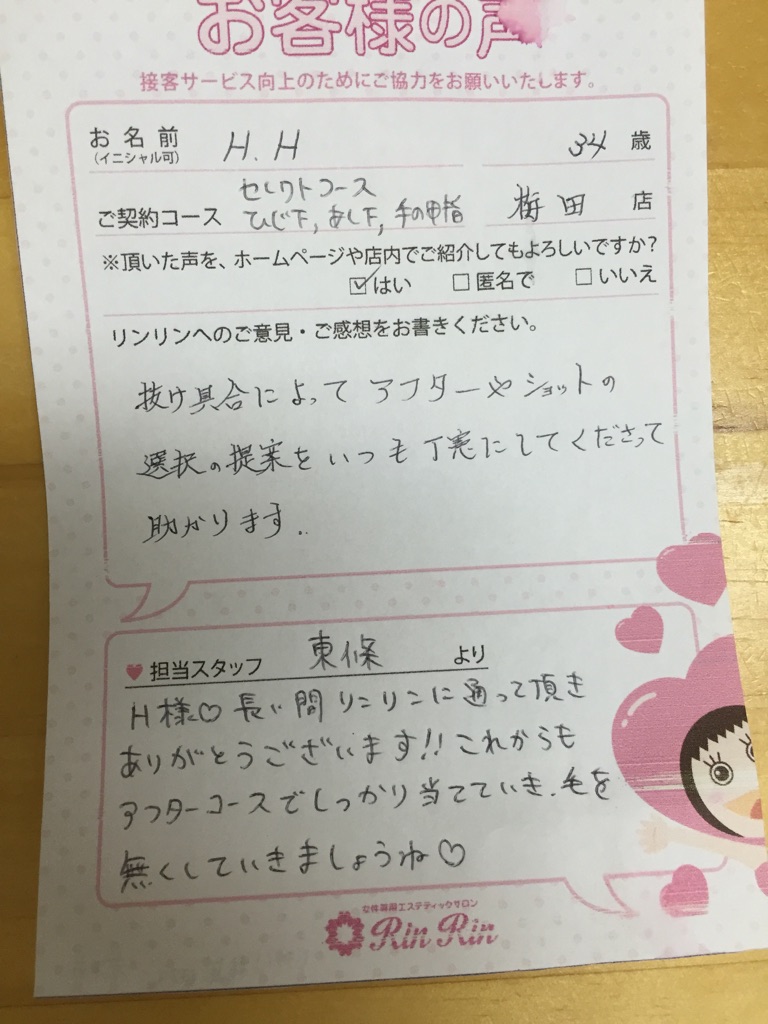 お客様の声
接客サービス向上のためにご協力をお願いいたします。
お名前 H.H 34 歳
(イニシャル可)
セレクトコース
ご契約コース ひじ下, あし下, 手の甲指 梅田 店
※頂いた声を、ホームページや店内でご紹介してもよろしいですか?
☑はい □匿名で □いいえ
リンリンへのご意見・ご感想をお書きください。
抜け具合によって アフターや ショットの
選択の提案を いつも 丁寧にしてくださって
助かります.
♥担当スタッフ 東條 より
H様♡ 長い間リンリンに通って頂き
ありがとうございます!! これからも
アフターコースでしっかり当てていき、毛を
無くしていきましょうね♡
女性専用エステティックサロン
Rin Rin